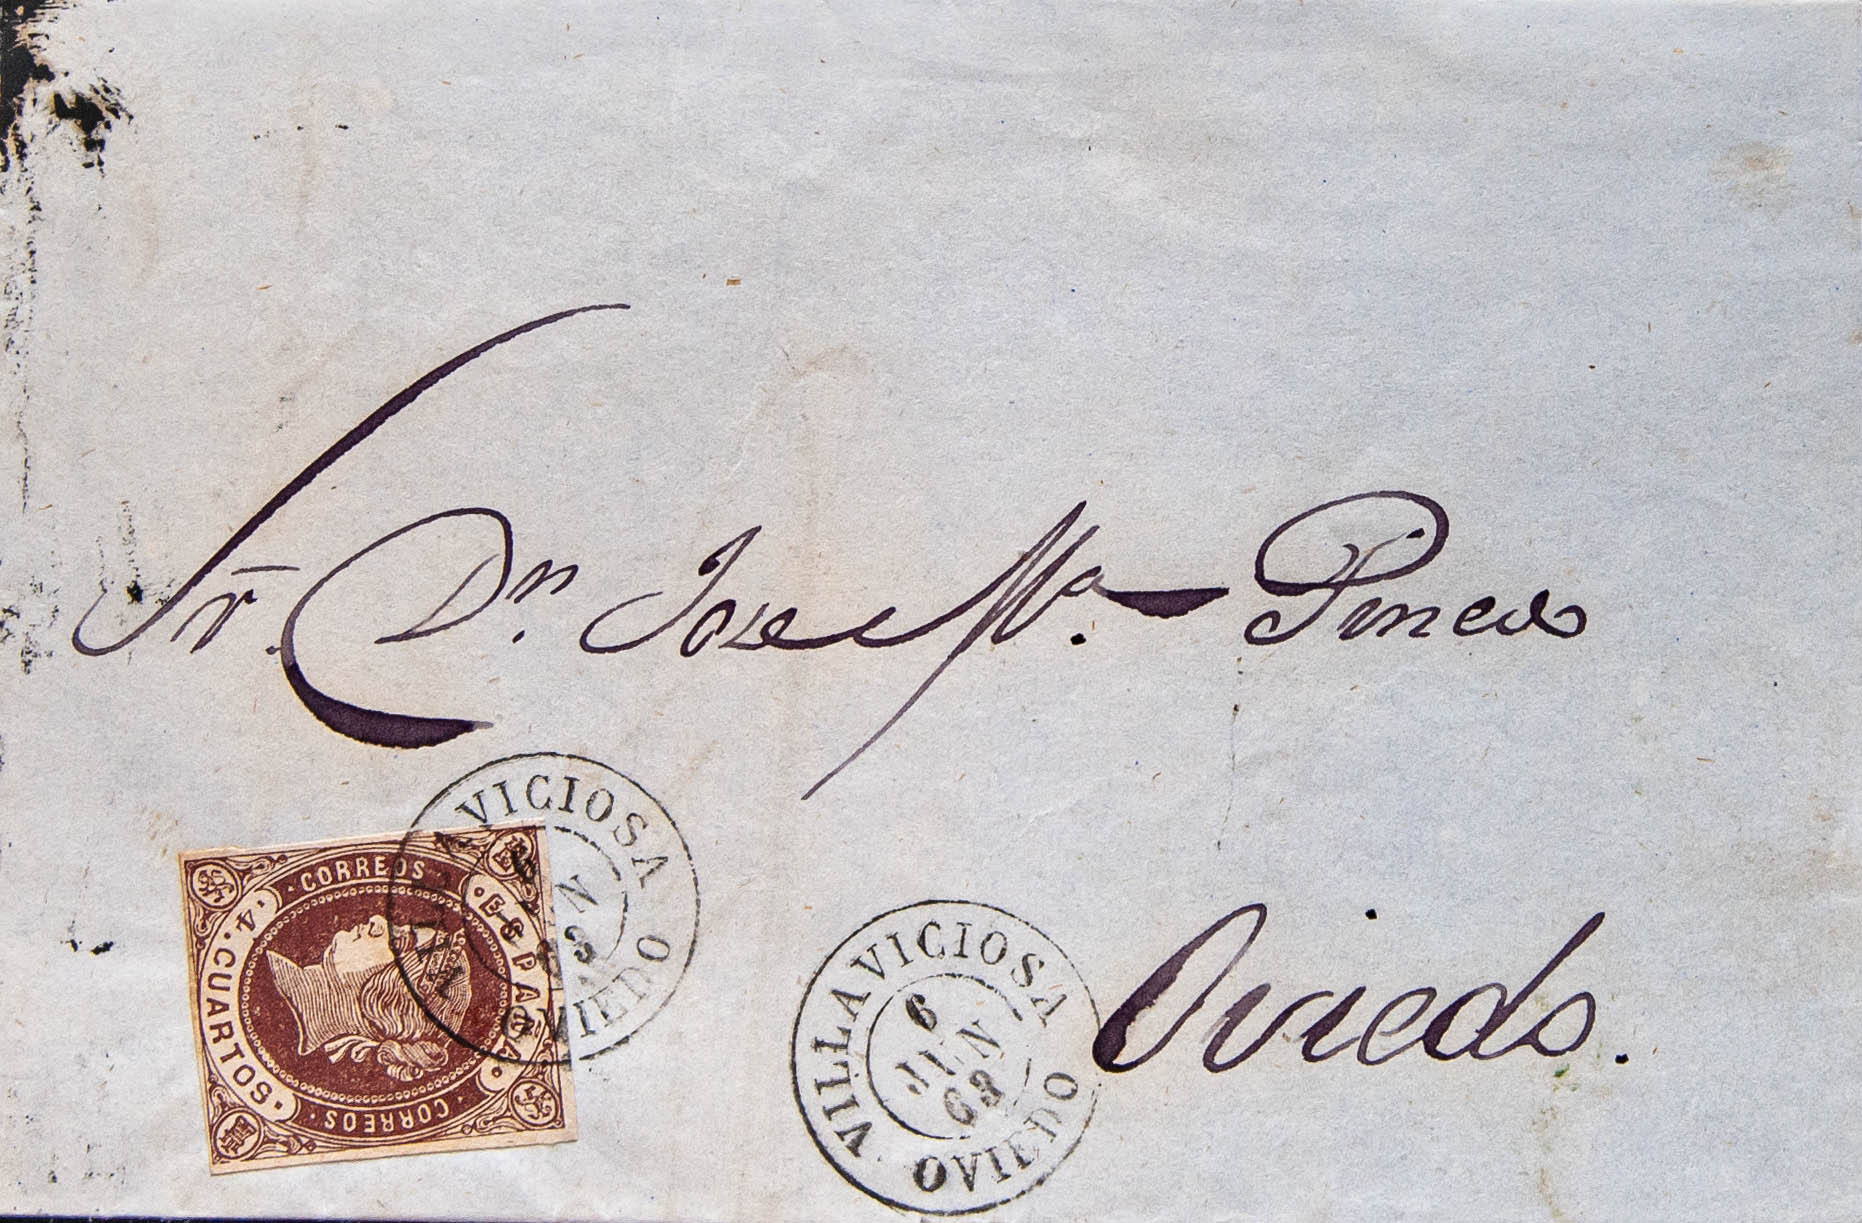 Sr. Dn. Jose Ma. Pineda
Oviedo.
VILLAVICIOSA
6
JUN
63
OVIEDO
AVICIOSA
6
N
63
OVIEDO
CORREOS
ESPAÑA
4 CUARTOS
CORREOS